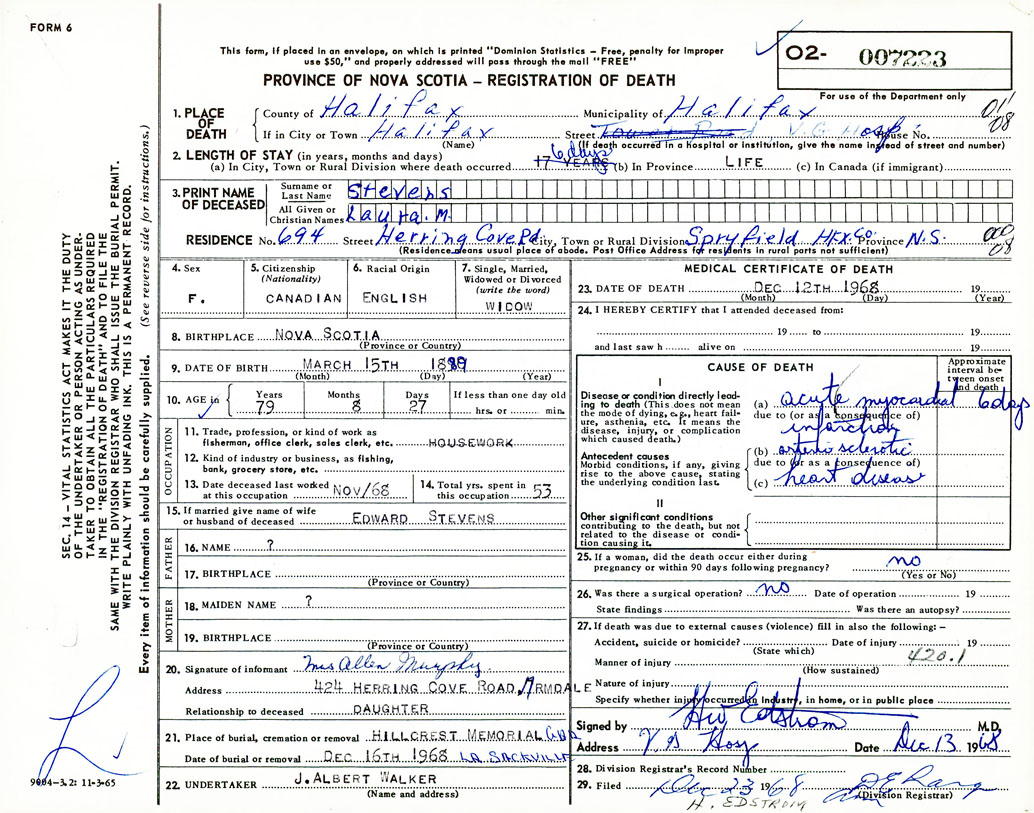 FORM 6
This form, if placed in an envelope, on which is printed "Dominion Statistics – Free, penalty for improper
use $50," and properly addressed will pass through the mail "FREE"
PROVINCE OF NOVA SCOTIA – REGISTRATION OF DEATH
O2- 007223
For use of the Department only
011
08
1. PLACE OF DEATH
County of Halifax Municipality of Halifax
If in City or Town Halifax Street Tower Road V.G. Hosp. House No.
(Name) (If death occurred in a Hospital or institution, give the name instead of street and number)
2. LENGTH OF STAY (in years, months and days)
6 days
(a) In City, Town or Rural Division where death occurred 17 YEARS (b) In Province LIFE (c) In Canada (if immigrant)
3. PRINT NAME OF DECEASED
Surname or Last Name Stevens
All Given or Christian Names Laura. M.
RESIDENCE No. 694 Street Herring Cove Rd. City, Town or Rural Division Spryfield Hfx Co. Province N.S.
000
08
(Residence means usual place of abode. Post Office Address for residents in rural parts not sufficient)
4. Sex
F.
5. Citizenship
(Nationality)
CANADIAN
6. Racial Origin
ENGLISH
7. Single, Married,
Widowed or Divorced
(write the word)
WIDOW
8. BIRTHPLACE NOVA SCOTIA
(Province or Country)
9. DATE OF BIRTH MARCH 15TH 1889
(Month) (Day) (Year)
10. AGE in Years 79 Months 8 Days 27 If less than one day old
hrs. or min.
OCCUPATION
11. Trade, profession, or kind of work as
fisherman, office clerk, sales clerk, etc. HOUSEWORK
12. Kind of industry or business, as fishing,
bank, grocery store, etc.
13. Date deceased last worked
at this occupation NOV/68
14. Total yrs. spent in
this occupation 53
15. If married give name of wife
or husband of deceased EDWARD STEVENS
FATHER
16. NAME ?
17. BIRTHPLACE
(Province or Country)
MOTHER
18. MAIDEN NAME ?
19. BIRTHPLACE
(Province or Country)
20. Signature of informant Mrs Allen Murphy
Address 424 HERRING COVE ROAD, ARMDALE
Relationship to deceased DAUGHTER
21. Place of burial, cremation or removal HILLCREST MEMORIAL
Date of burial or removal DEC 16TH 1968 LR. SACKVILLE
22. UNDERTAKER J. ALBERT WALKER
(Name and address)
MEDICAL CERTIFICATE OF DEATH
23. DATE OF DEATH DEC 12TH 1968 19
(Month) (Day) (Year)
24. I HEREBY CERTIFY that I attended deceased from:
19 to 19
and last saw h alive on 19
CAUSE OF DEATH
Approximate
interval be-
tween onset
and death
I
Disease or condition directly lead-
ing to death (This does not mean
the mode of dying, e.g., heart fail-
ure, asthenia, etc. It means the
disease, injury, or complication
which caused death.)
(a) acute myocardial 6 days
due to (or as a consequence of)
infarction
Antecedent causes
Morbid conditions, if any, giving
rise to the above cause, stating
the underlying condition last.
(b) arterio sclerotic
due to (or as a consequence of)
(c) heart disease
II
Other significant conditions
contributing to the death, but not
related to the disease or condi-
tion causing it.
25. If a woman, did the death occur either during
pregnancy or within 90 days following pregnancy? no
(Yes or No)
26. Was there a surgical operation? no Date of operation 19
State findings Was there an autopsy?
27. If death was due to external causes (violence) fill in also the following: –
Accident, suicide or homicide? Date of injury 19
(State which)
420.1
Manner of injury
(How sustained)
Nature of injury
Specify whether injury occurred in Industry, in home, or in public place
Signed by HW Edstrom M.D.
Address V G Hosp Date Dec 13 1968
28. Division Registrar's Record Number
29. Filed Dec 23 1968
(Division Registrar)
H. EDSTROM
SEC. 14 – VITAL STATISTICS ACT MAKES IT THE DUTY
OF THE UNDERTAKER OR PERSON ACTING AS UNDER-
TAKER TO OBTAIN ALL THE PARTICULARS REQUIRED
IN THE "REGISTRATION OF DEATH" AND TO FILE THE
SAME WITH THE DIVISION REGISTRAR WHO SHALL ISSUE THE BURIAL PERMIT.
WRITE PLAINLY WITH UNFADING INK. THIS IS A PERMANENT RECORD.
Every item of information should be carefully supplied. (See reverse side for instructions.)
9004–3.2: 11-3-65